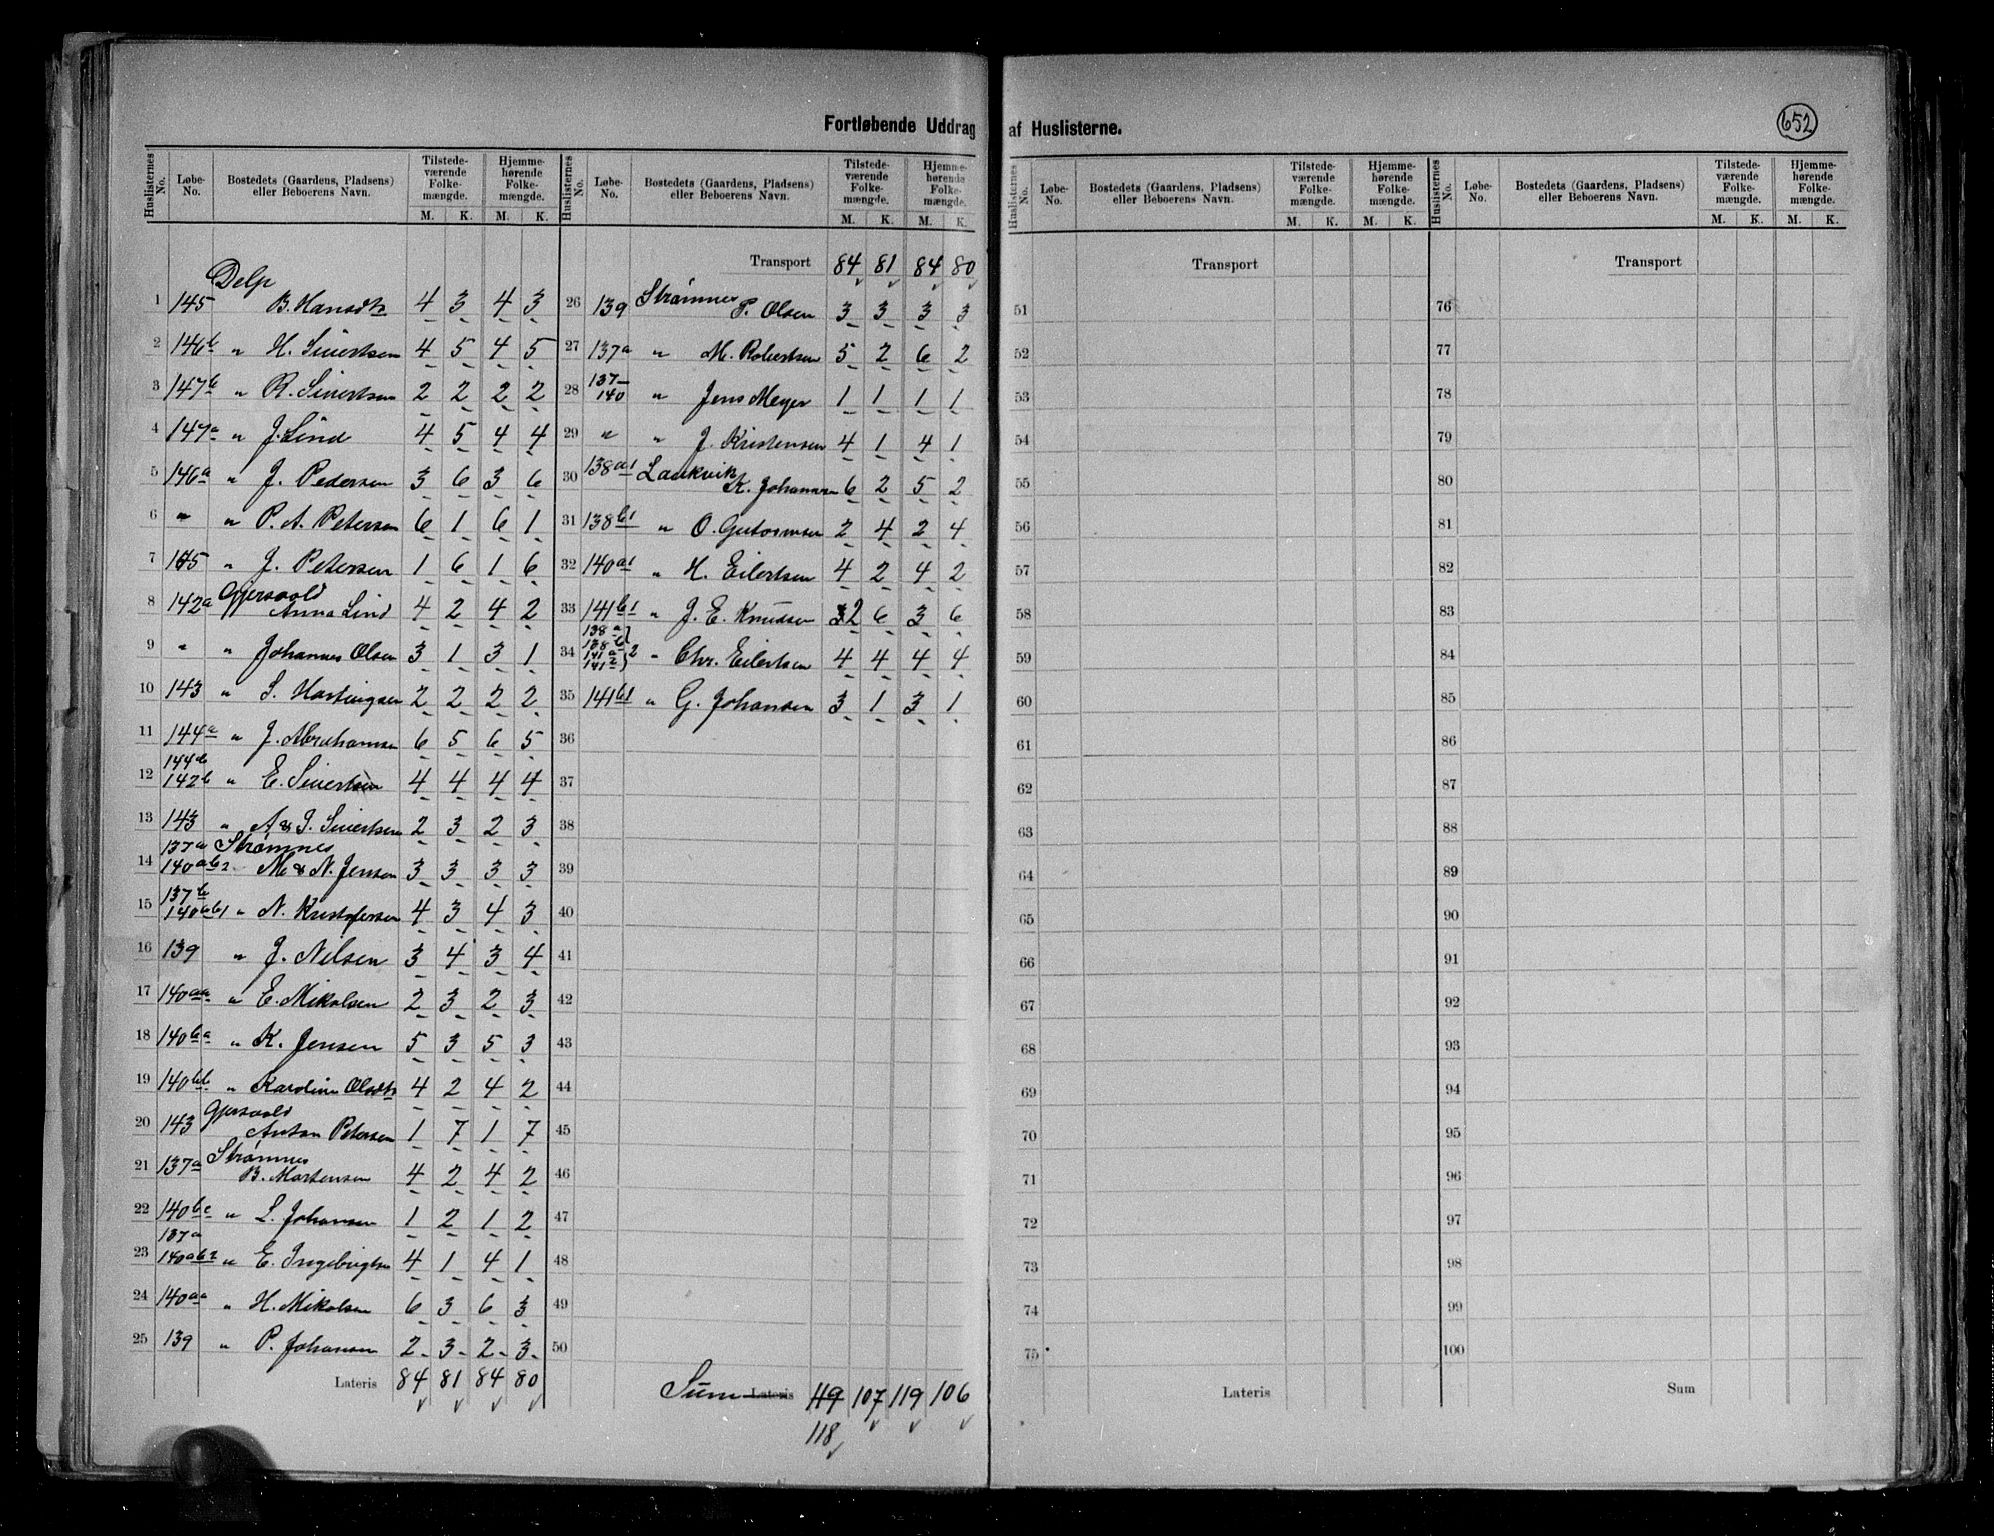 Fortløbende Uddrag af Huslisterne.
652
Huslisternes No. Løbe-No. Bostedets (Gaardens, Pladsens) eller Beboerens Navn. Tilstedeværende Folkemængde. M. K. Hjemmehørende Folkemængde. M. K.
Delp
1 145 B. Hansdtr 4 3 4 3
2 146b " H. Sivertsen 4 5 4 5
3 147b " R. Sivertsen 2 2 2 2
4 147a " J. Lind 4 5 4 4
5 146a " J. Pedersen 3 6 3 6
6 " " P. A. Petersen 6 1 6 1
7 145 " J. Petersen 1 6 1 6
Gjersvold
8 142a Anna Lind 4 2 4 2
9 " " Johannes Olsen 3 1 3 1
10 143 " S. Hartvigsen 2 2 2 2
11 144a " J. Abrahamsen 6 5 6 5
144b
12 142b " E. Sivertsen 4 4 4 4
13 143 " A & J. Sivertsen 2 3 2 3
137a Strømnes
14 140ab2 M & N. Jensen 3 3 3 3
137b
15 140bb1 " N. Kristofersen 4 3 4 3
16 139 " J. Nilsen 3 4 3 4
17 140aa " E. Mikalsen 2 3 2 3
18 140ba " K. Jensen 5 3 5 3
19 140bb " Karoline Olsdtr 4 2 4 2
Gjersvold
20 143 Anton Petersen 1 7 1 7
Strømnes
21 137a B. Mortensen 4 2 4 2
22 140bc " L. Johansen 1 2 1 2
137a
23 140ab2 " E. Ingebrigtsen 4 1 4 1
24 140aa " H. Mikalsen 6 3 6 3
25 139 " P. Johansen 2 3 2 3
Lateris 84 81 84 80
Huslisternes No. Løbe-No. Bostedets (Gaardens, Pladsens) eller Beboerens Navn. Tilstedeværende Folkemængde. M. K. Hjemmehørende Folkemængde. M. K.
Transport 84 81 84 80
Strømnes
26 139 P. Olsen 3 3 3 3
27 137a " M. Robertsen 5 2 6 2
137–
28 140 " Jens Meyer 1 1 1 1
29 " " J. Kristensen 4 1 4 1
138a1 Laukvik
30 K. Johansen 6 2 5 2
31 138b1 " O. Gutormsen 2 4 2 4
32 140a1 " H. Eilertsen 4 2 4 2
33 141b1 " J. E. Knudsen 2 6 3 6
138a
138b
34 141a 2 " Chr. Eilertsen 4 4 4 4
141
35 141b1 " G. Johansen 3 1 3 1
36
37
38
39
40
41
42
43
44
45
46
47
48
49
50
Sum Lateris 119 107 119 106
118
Huslisternes No. Løbe-No. Bostedets (Gaardens, Pladsens) eller Beboerens Navn. Tilstedeværende Folkemængde. M. K. Hjemmehørende Folkemængde. M. K.
Transport
51
52
53
54
55
56
57
58
59
60
61
62
63
64
65
66
67
68
69
70
71
72
73
74
75
Lateris
Huslisternes No. Løbe-No. Bostedets (Gaardens, Pladsens) eller Beboerens Navn. Tilstedeværende Folkemængde. M. K. Hjemmehørende Folkemængde. M. K.
Transport
76
77
78
79
80
81
82
83
84
85
86
87
88
89
90
91
92
93
94
95
96
97
98
99
100
Sum